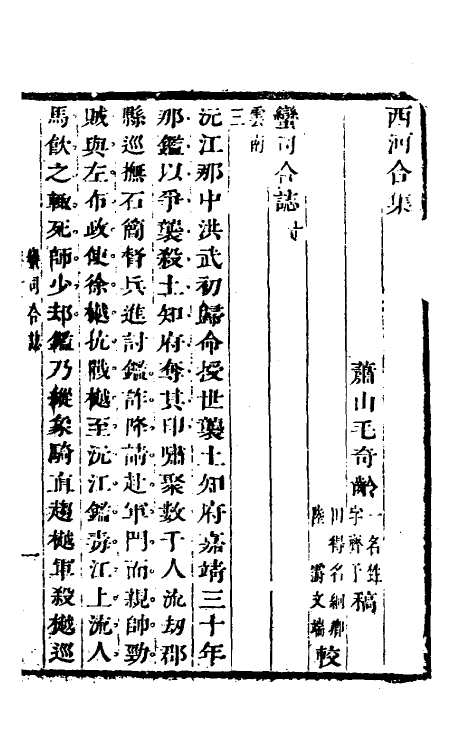 西河合集
蕭山毛奇齡一名甡字齊于稿
川得名綱卿
陸 文端較
蠻司合誌
雲南
三
沅江那中洪武初歸命授世襲土知府嘉靖三十年
那鑑以爭襲殺土知府奪其印嘯聚數千人流刼郡
縣巡撫石簡督兵進討鑑詐降請赴軍門而親帥勁
賊與左布政使徐樾抗戰樾至沅江鑑毒江上流人
馬飲之輒死師少却鑑乃縱象騎直趨樾軍殺樾巡
蠻司合誌
一